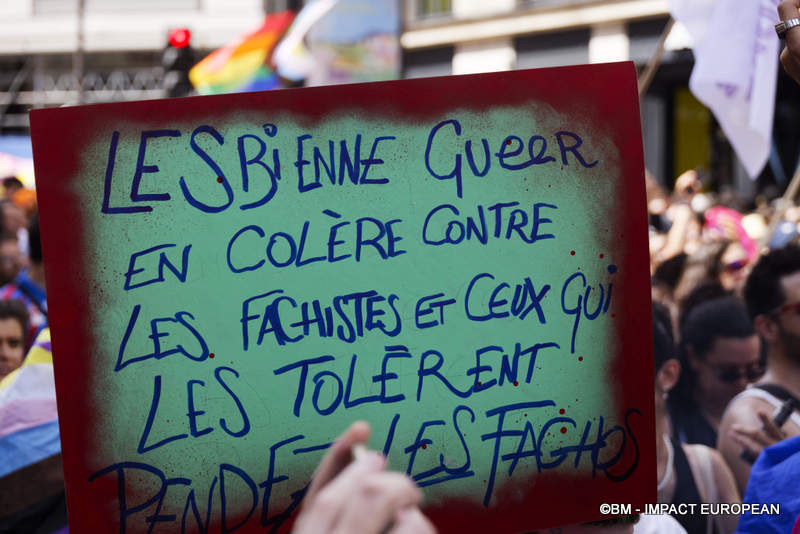 LESBiENNE Queer
EN COLÈRE CONTRE
LES FACHISTES ET CEUX QUi
LES TOLÈRENT
PENDEZ LES FACHOS
©BM - IMPACT EUROPEAN